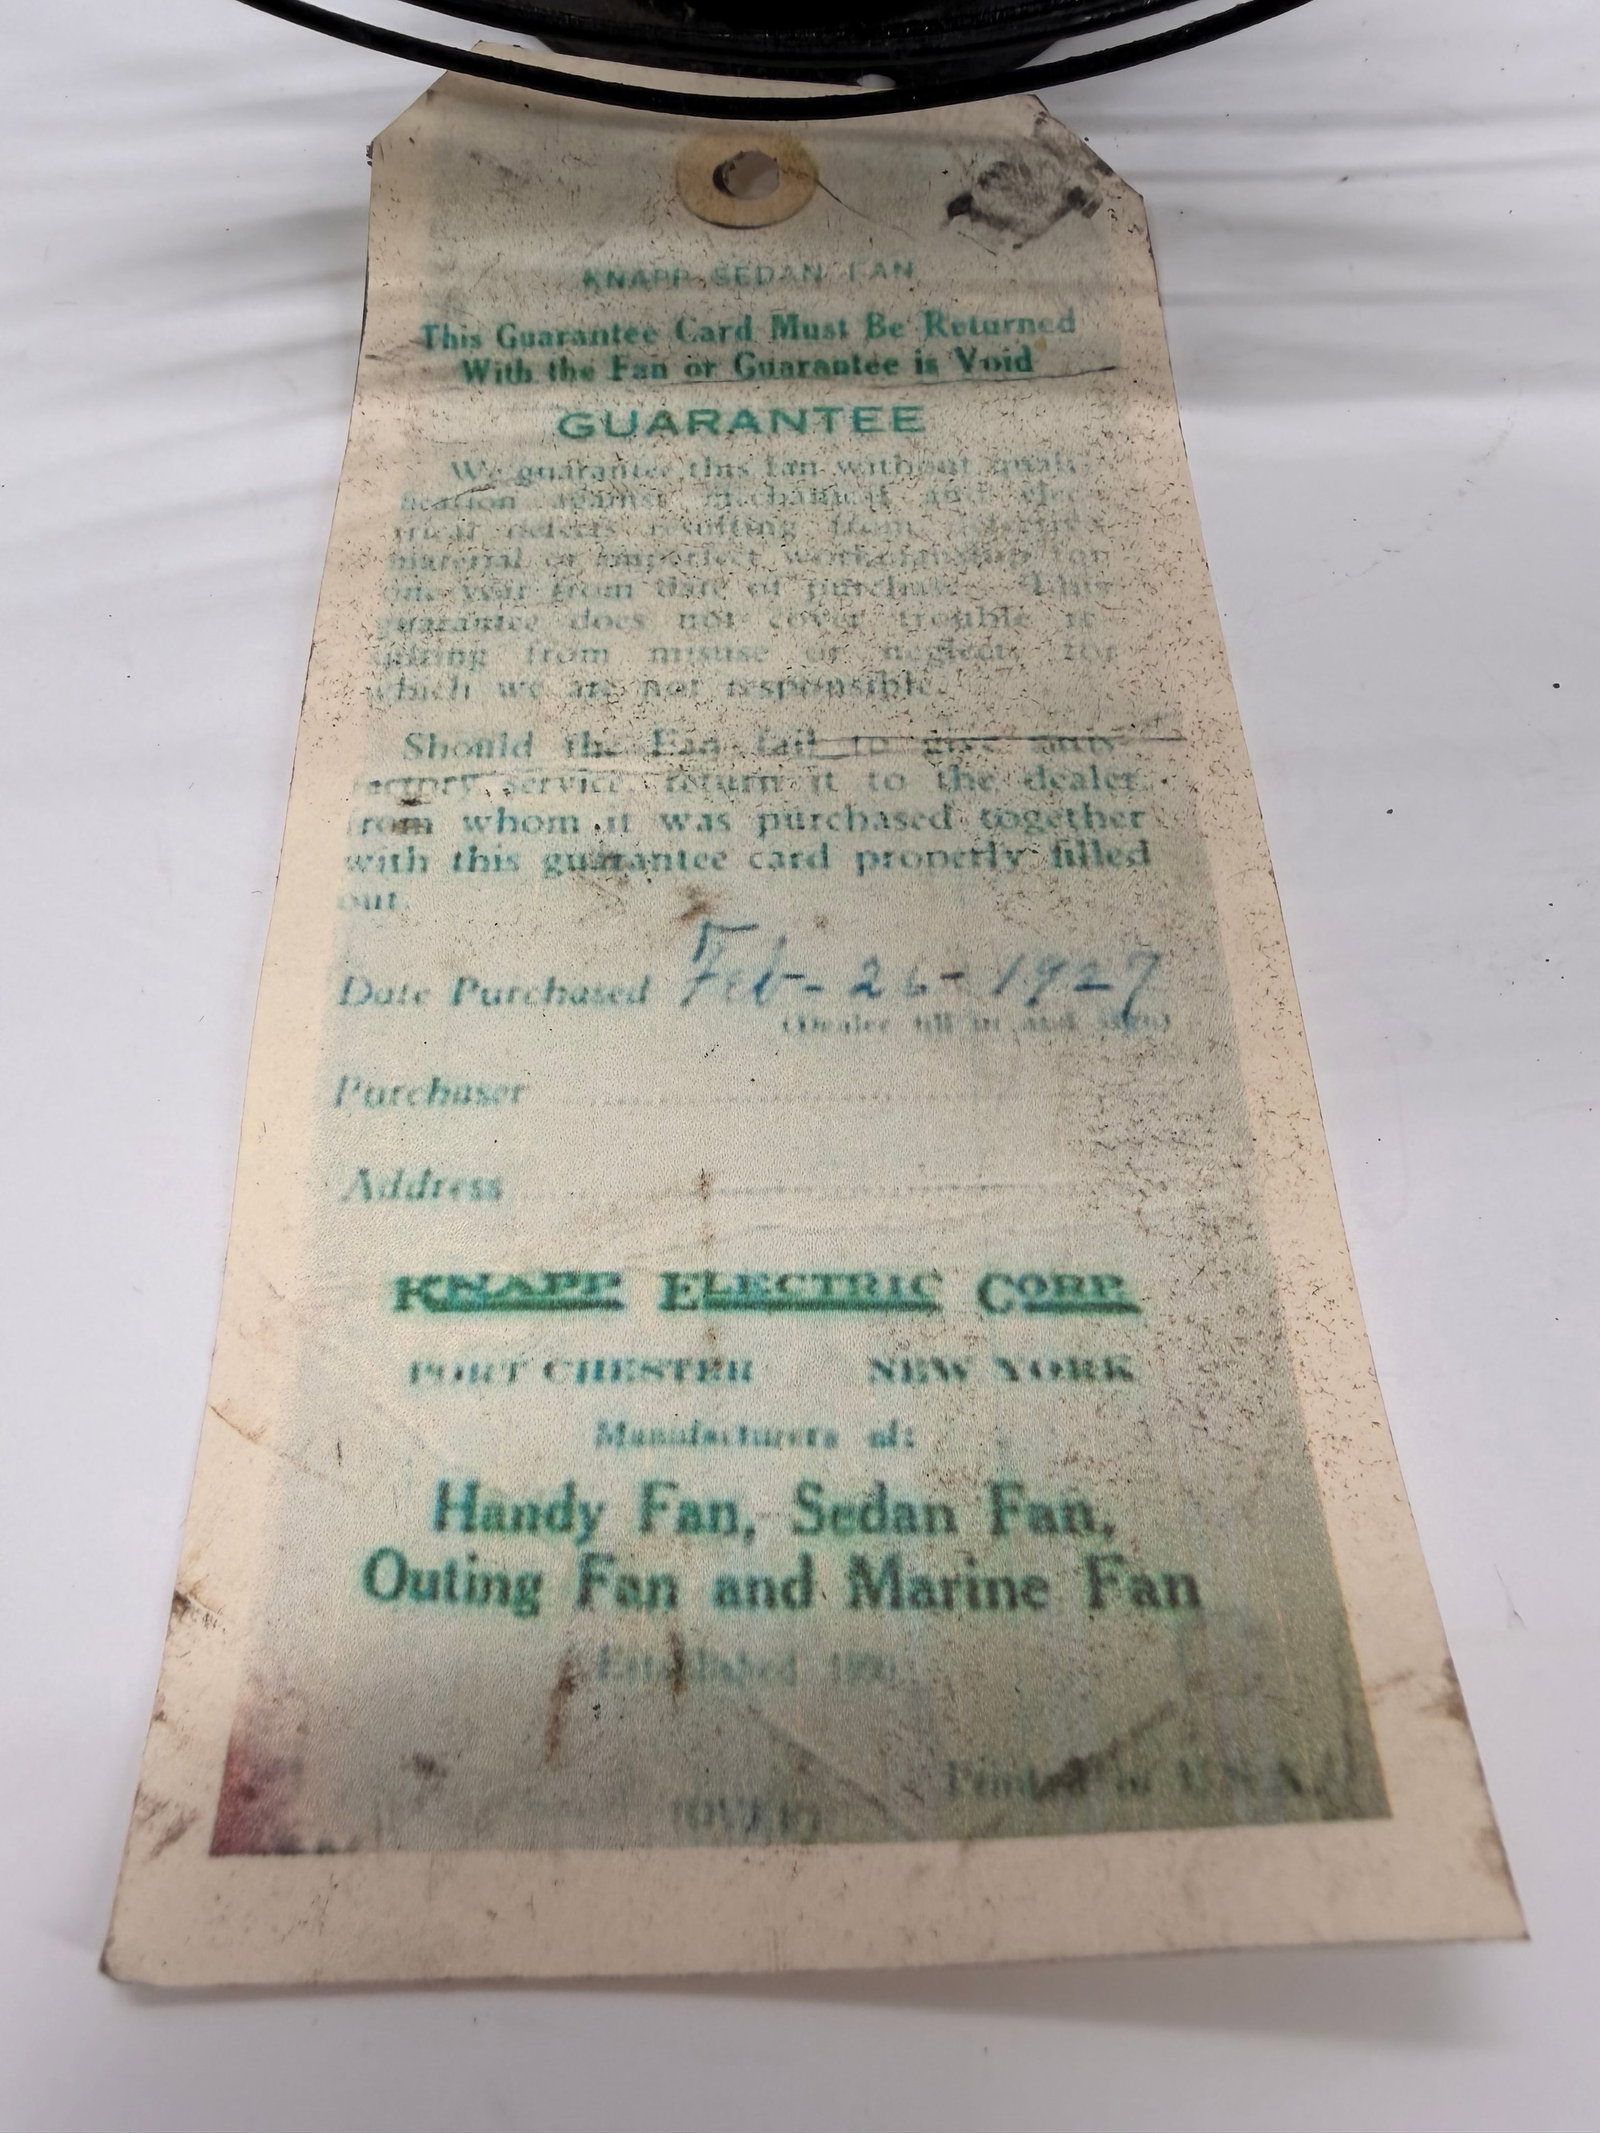 KNAPP SEDAN FAN
This Guarantee Card Must Be Returned
With the Fan or Guarantee is Void
GUARANTEE
We guarantee this fan without quali-
fication against mechanical and elec-
trical defects resulting from defective
material or imperfect workmanship for
one year from date of purchase. This
guarantee does not cover trouble re-
sulting from misuse or neglect, for
which we are not responsible.
Should the Fan fail to give satis-
factory service, return it to the dealer
from whom it was purchased together
with this guarantee card properly filled
out.
Date Purchased Feb - 26 - 1927
(Dealer fill in and sign)
Purchaser
Address
KNAPP ELECTRIC CORP.
PORT CHESTER NEW YORK
Manufacturers of:
Handy Fan, Sedan Fan,
Outing Fan and Marine Fan
Established
Printed in U.S.A.
(OVER)